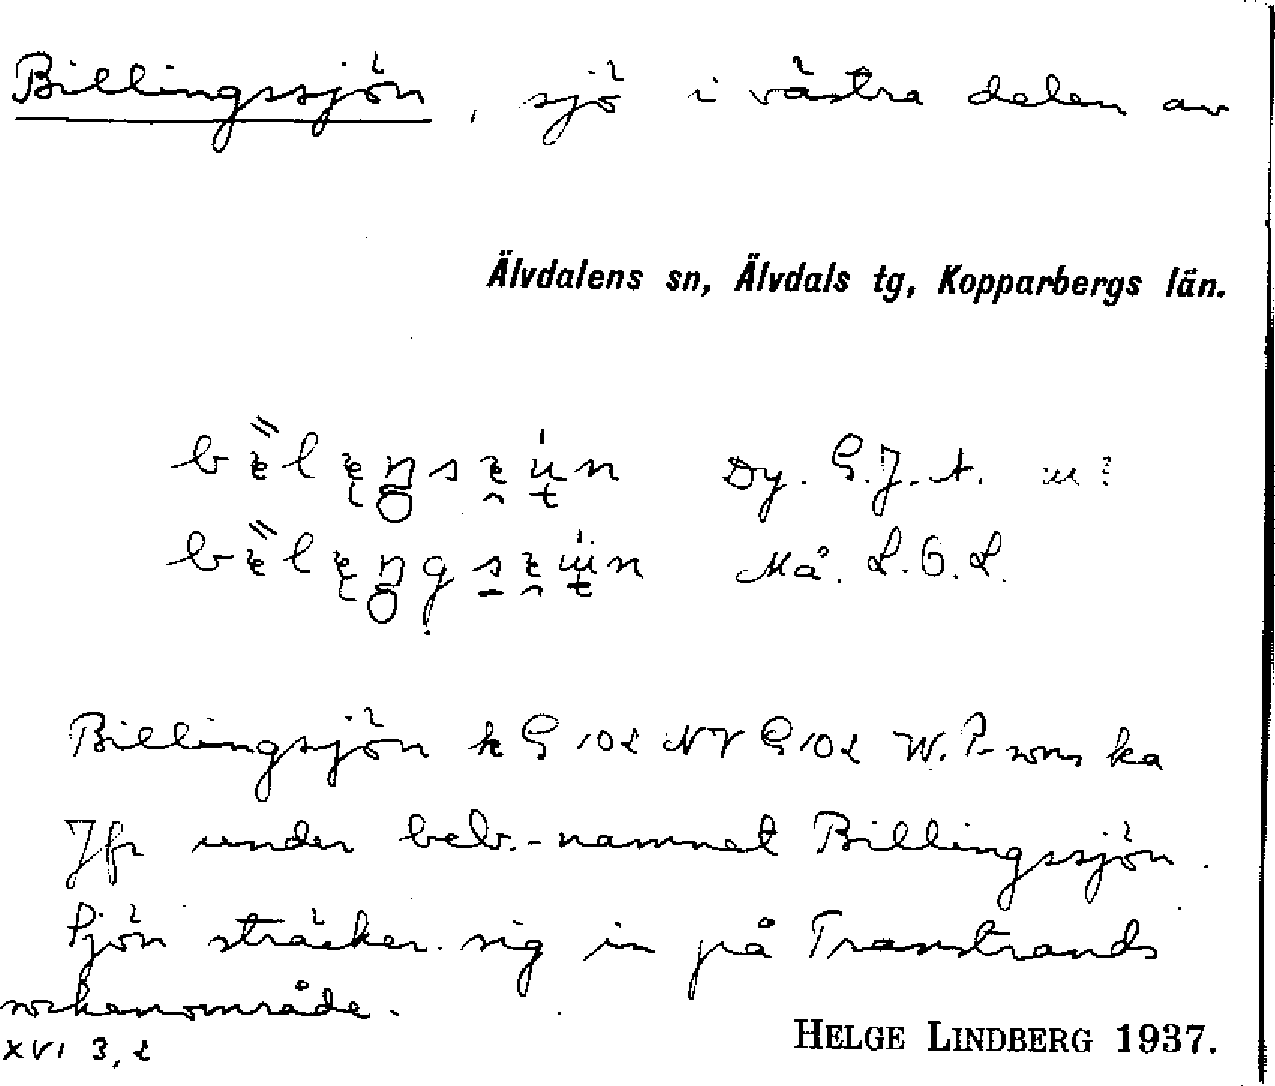 Billingssjön, sjö i västra delen av
Älvdalens sn, Älvdals tg, Kopparbergs län.
Dy. G.J.A.
Må. L.O.L.
Billingsjön k G 102 NV G 102 W. P-sons ka
Jfr under beb.-namnet Billingssjön.
Sjön sträcker sig in på Transtrands
sockenområde.
XVI 3, 2
HELGE LINDBERG 1937.